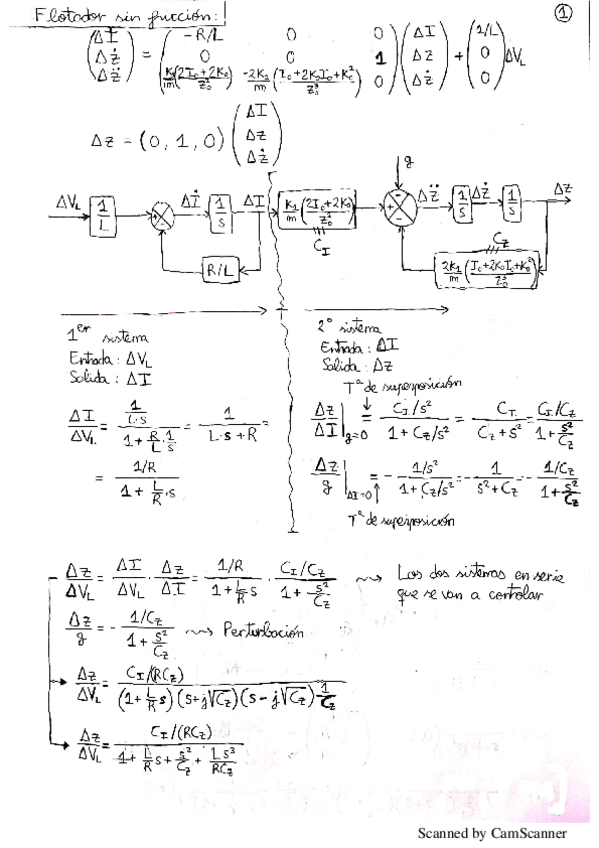 Flotador sin fricción: ①
(ΔİI; Δż; Δz̈) = (-R/L 0 0; 0 0 1; K₁/m (2I₀+2K₀/z₀²) -2K₁/m (I₀+2K₀I₀+K₀²/z₀³) 0) (ΔI; Δz; Δż) + (1/L; 0; 0) ΔV_L
Δz = (0, 1, 0) (ΔI; Δz; Δż)
g
ΔV_L 1/L ΔİI 1/s ΔI K₁/m (2I₀+2K₀/z₀²) Δz̈ 1/s Δż 1/s Δz
C_I C_z
R/L 2K₁/m (I₀+2K₀I₀+K₀²/z₀³)
1er sistema
Entrada: ΔV_L
Salida: ΔI
2º sistema
Entrada: ΔI
Salida: Δz
Tª de superposición
ΔI/ΔV_L = (1/(L·s))/(1 + R/L · 1/s) = 1/(L·s + R) =
= (1/R)/(1 + L/R · s)
Δz/ΔI |g=0 = (C_I/s²)/(1 + C_z/s²) = C_I/(C_z + s²) = (C_I/C_z)/(1 + s²/C_z)
Δz/g |ΔI=0 = - (1/s²)/(1 + C_z/s²) = - 1/(s² + C_z) = - (1/C_z)/(1 + s²/C_z)
Tª de superposición
Δz/ΔV_L = ΔI/ΔV_L · Δz/ΔI = (1/R)/(1 + L/R s) · (C_I/C_z)/(1 + s²/C_z) ⇝ Los dos sistemas en serie
que se van a controlar
Δz/g = - (1/C_z)/(1 + s²/C_z) ⇝ Perturbación
Δz/ΔV_L = (C_I/(RC_z))/((1 + L/R s)(s + j√C_z)(s - j√C_z) 1/C_z)
Δz/ΔV_L = (C_I/(RC_z))/(1 + L/R s + s²/C_z + L s³/(RC_z))
Scanned by CamScanner